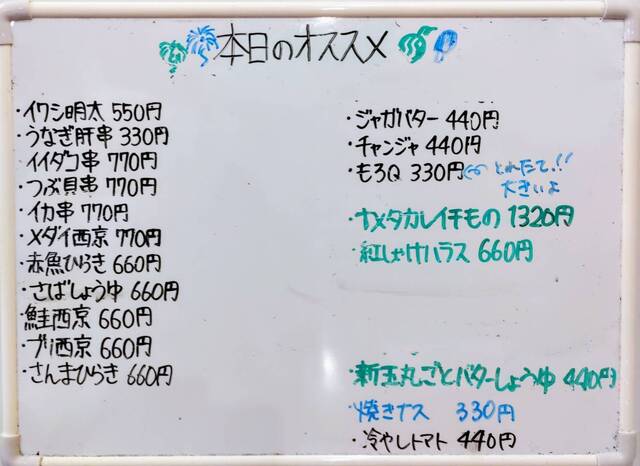 本日のオススメ
・イワシ明太 550円
・うなぎ肝串 330円
・イイダコ串 770円
・つぶ貝串 770円
・イカ串 770円
・メダイ西京 770円
・赤魚ひらき 660円
・さばしょうゆ 660円
・鮭西京 660円
・ブリ西京 660円
・さんまひらき 660円
・ジャガバター 440円
・チャンジャ 440円
・もろQ 330円 とれたて!!
大きいよ
・ナメタカレイ干もの 1320円
・紅しゃけハラス 660円
・新玉丸ごとバターしょうゆ 440円
・焼きナス 330円
・冷やしトマト 440円